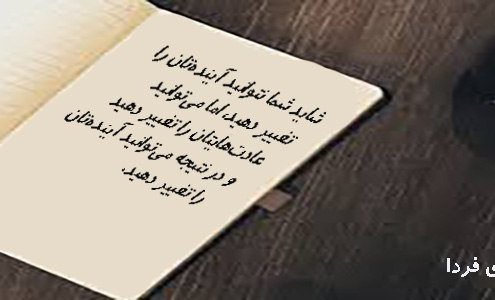 شاید شما نتوانید آینده‌تان را
تغییر دهید، اما می‌توانید
عادت‌هایتان را تغییر دهید
و در نتیجه می‌توانید آینده‌تان
را تغییر دهید.
فردا